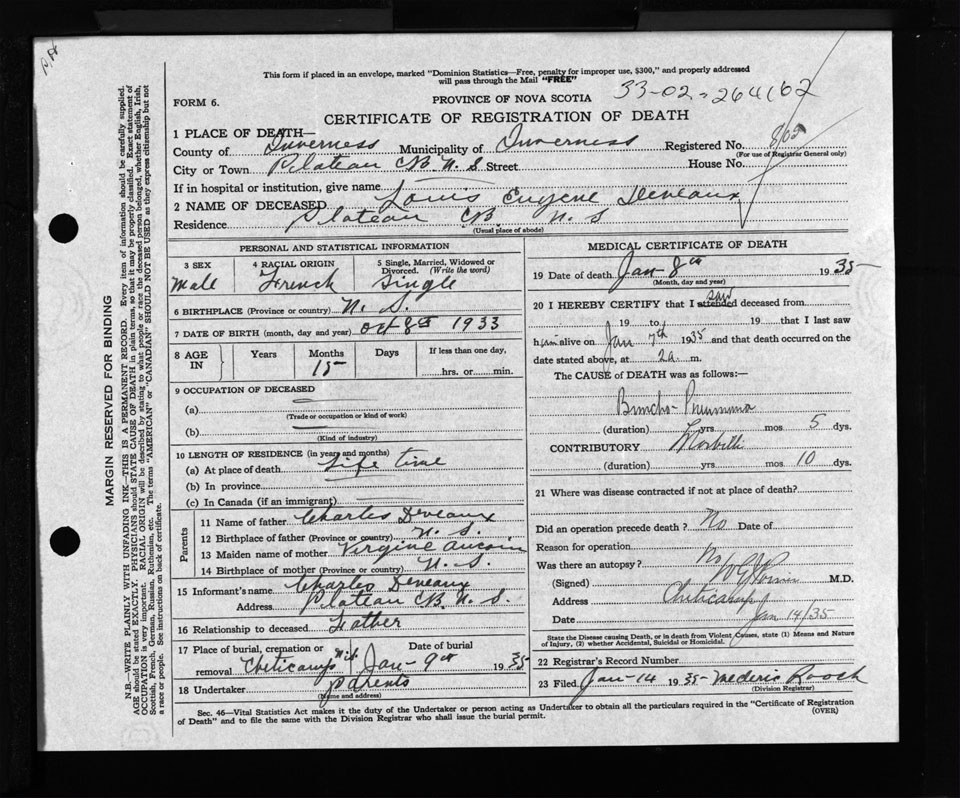 This form if placed in an envelope, marked "Dominion Statistics—Free, penalty for improper use, $300," and properly addressed
will pass through the Mail "FREE"
33-02-264162
FORM 6.
PROVINCE OF NOVA SCOTIA
CERTIFICATE OF REGISTRATION OF DEATH
1 PLACE OF DEATH—
County of Inverness Municipality of Inverness Registered No.
(For use of Registrar General only)
City or Town Plateau CB N. S Street House No.
If in hospital or institution, give name
2 NAME OF DECEASED Louis Eugene Deveaux
Residence Plateau CB. N. S
(Usual place of abode)
PERSONAL AND STATISTICAL INFORMATION
3 SEX Male
4 RACIAL ORIGIN French
5 Single, Married, Widowed or Divorced. (Write the word) Single
6 BIRTHPLACE (Province or country) N. S.
7 DATE OF BIRTH (month, day and year) Oct 8th 1933
8 AGE IN Years Months 15 Days If less than one day, hrs. or min.
9 OCCUPATION OF DECEASED
(a)
(Trade or occupation or kind of work)
(b)
(Kind of industry)
10 LENGTH OF RESIDENCE (in years and months)
(a) At place of death Life time
(b) In province
(c) In Canada (if an immigrant)
Parents
11 Name of father Charles Deveaux
12 Birthplace of father (Province or country) N. S.
13 Maiden name of mother Virginie Aucoin
14 Birthplace of mother (Province or country) N. S.
15 Informant's name Charles Deveaux
Address Plateau CB. N. S.
16 Relationship to deceased Father
17 Place of burial, cremation or removal Cheticamp N.S. Date of burial Jan - 9th 1935
18 Undertaker Parents
(Name and address)
MEDICAL CERTIFICATE OF DEATH
19 Date of death Jan 8th 1935
(Month, day and year)
20 I HEREBY CERTIFY that I attended saw deceased from
19 to 19 that I last saw
him alive on Jan 7th 1935 and that death occurred on the
date stated above, at 2 a. m.
The CAUSE of DEATH was as follows:—
Broncho-Pneumonia
(duration) yrs mos 5 dys.
CONTRIBUTORY Morbilli
(duration) yrs mos 10 dys.
21 Where was disease contracted if not at place of death?
Did an operation precede death? No Date of
Reason for operation
Was there an autopsy? No
(Signed) M.D.
Address Cheticamp
Date Jan 14/35
State the Disease causing Death, or in death from Violent Causes, state (1) Means and Nature
of Injury, (2) whether Accidental, Suicidal or Homicidal.
22 Registrar's Record Number
23 Filed Jan-14 1935- Mederic Roach
(Division Registrar)
Sec. 46—Vital Statistics Act makes it the duty of the Undertaker or person acting as Undertaker to obtain all the particulars required in the "Certificate of Registration
of Death" and to file the same with the Division Registrar who shall issue the burial permit.
(OVER)
MARGIN RESERVED FOR BINDING
N.B.—WRITE PLAINLY WITH UNFADING INK—THIS IS A PERMANENT RECORD. Every item of information should be carefully supplied.
AGE should be stated EXACTLY. PHYSICIANS should STATE CAUSE OF DEATH in plain terms, so that it may be properly classified. Exact statement of
OCCUPATION is very important. RACIAL ORIGIN will be described by stating to what people or race the deceased person belonged, whether English, Irish,
Scottish, French, German, Russian, Ruthenian, etc. The terms "AMERICAN" or "CANADIAN" SHOULD NOT BE USED as they express citizenship but not
a race or people. See instructions on back of certificate.